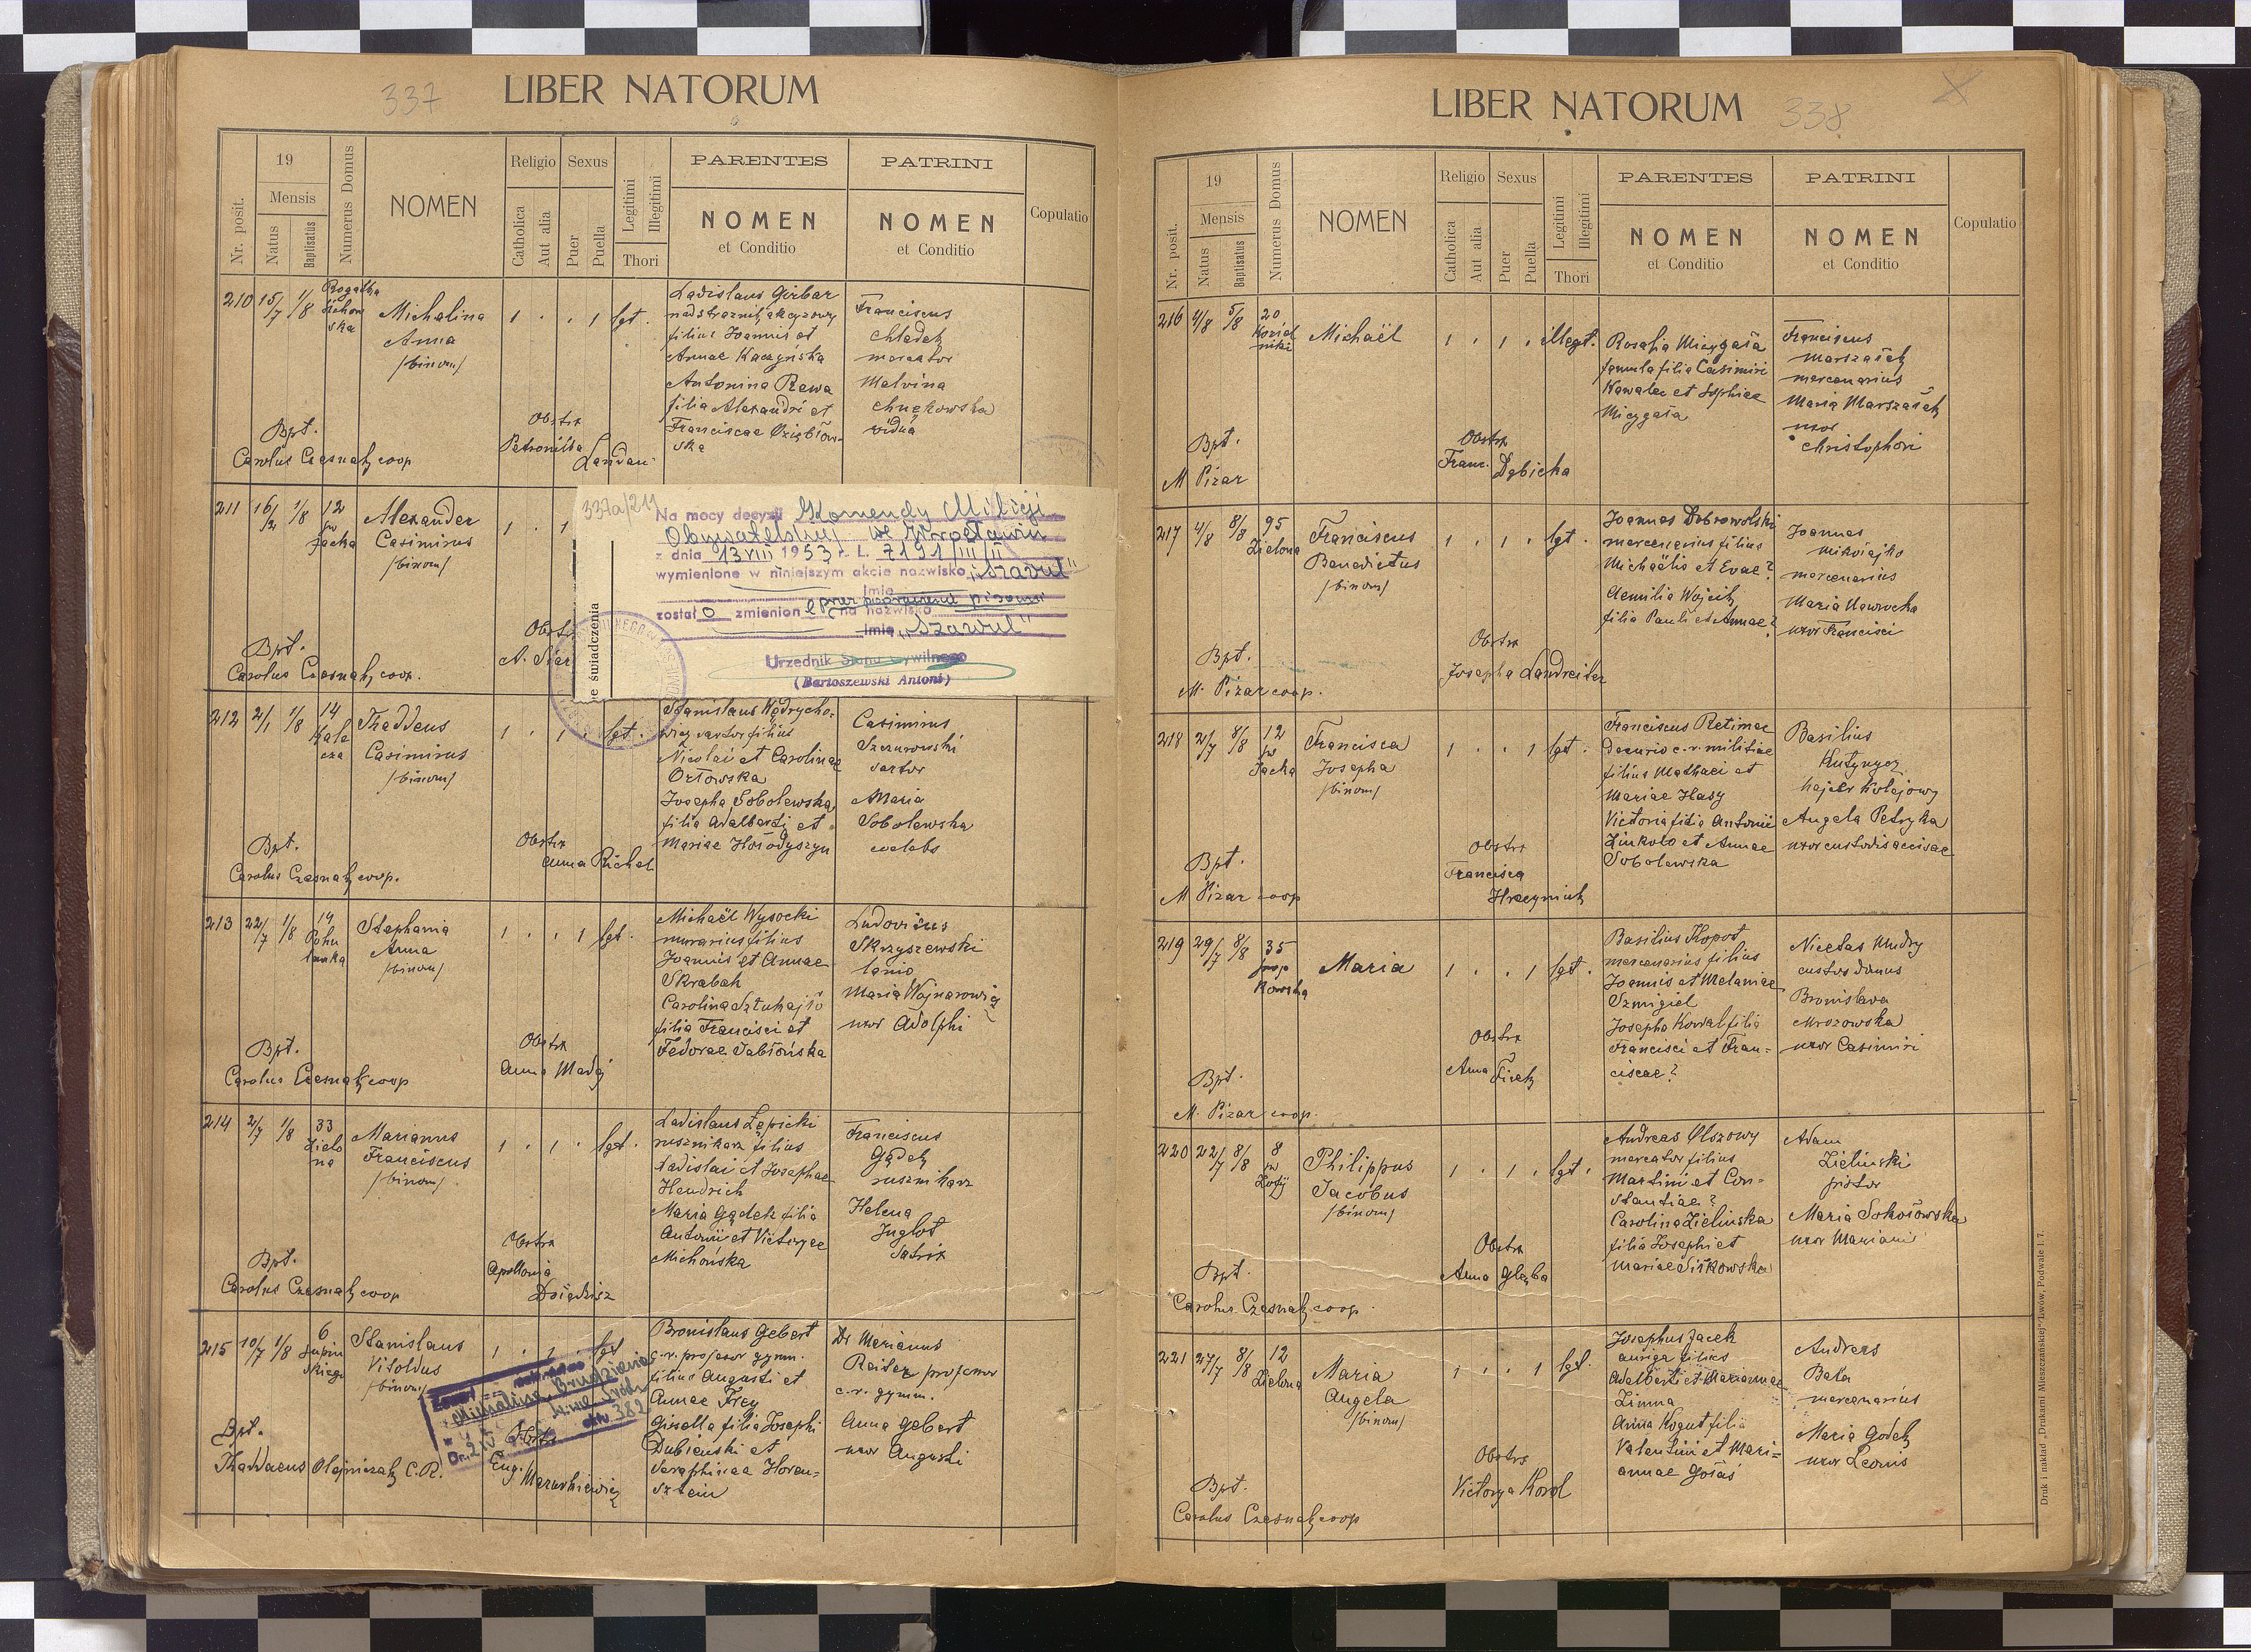 337
LIBER NATORUM
Nr. posit.
19
Mensis
Natus
Baptisatus
Numerus Domus
NOMEN
Religio
Catholica
Aut alia
Sexus
Puer
Puella
Legitimi
Illegitimi
Thori
PARENTES
NOMEN
et Conditio
PATRINI
NOMEN
et Conditio
Copulatio
210 15/7 1/8
Michalina
Anna
/binom/
1 . . 1 lgt.
Ladislaus Gerbar
nadstrażnik akcyzowy
filius Joannis et
Annae Kaczyńska
Antonina Rewa
filia Alexandri et
Franciscae
Franciscus
Chładek
mercator
Malvina
vidua
Bpt.
Carolus Czesnak coop
Obstrx
Petronilla Landau
211 16/2 1/8 12
św
Jacka
Alexander
Casimirus
/binom/
1 . 1
Bpt.
Carolus Czesnak coop.
Obstr
337a/211
Na mocy decyzji Komendy Milicji
Obywatelskiej we Wrocławiu
z dnia 13 VIII 1953 r. L. 7191/III/II
wymienione w niniejszym akcie nazwisko "Szavul"
imię
został o zmienion e przez poprawienie pisowni
na nazwisko
imię "Szawul"
Urzednik Stanu Cywilnego
(Bartoszewski Antoni)
e świadczenia
212 2/1 1/8 14
Kale
cza
Thaddeus
Casimirus
/binom/
1 . 1 . lgt.
Stanislaus Wędrycho-
wicz sartor filius
Nicolai et Carolinae
Orłowska
Josepha Sobolewska
filia Adalberti et
Mariae Horodyszyn
Casimirus
Szczurowski
sartor
Maria
Sobolewska
coelebs
Bpt.
Carolus Czesnak coop.
Obstrx
Anna Richel
213 22/7 1/8 19
Pohu
lanka
Stephania
Anna
/binom/
1 . . 1 lgt.
Michaël Wysocki
murarius filius
Joannis et Annae
Skrabak
Carolina Sztukajło
filia Francisci et
Fedorae Jabłońska
Ludovicus
Skrzyszewski
lanio
Maria Wojnarowicz
uxor Adolphi
Bpt.
Carolus Czesnak coop
Obstrx
Anna Madej
214 2/7 1/8 33
Zielo
na
Marianus
Franciscus
/binom/
1 . 1 . lgt.
Ladislaus Łępicki
rusznikarz filius
Ladislai et Josephae
Hendrich
Maria Gądek filia
Antonii et Victoryae
Michońska
Franciscus
Gądek
rusznikarz
Helena
Juglot
Bpt.
Carolus Czesnak coop
Obstrx
Apollonia
Dsiędzisz
215 10/7 1/8 6
Supiń
skiego
Stanislaus
Vitoldus
/binom/
1 . 1 . lgt
Bronislaus Gebert
c.r. profesor gymn.
filius Augusti et
Annae Frey
Gisella filia Josephi
Dubieński et
Seraphinae Horen-
sztein
Dr Marianus
Reiter profesor
c.r. gymn.
Anna Gebert
uxor Augusti
Bpt.
Thaddaeus Olejniczak C.R.
Obstrx
Eug. Mazurkiewicz
338
LIBER NATORUM
Nr. posit.
19
Mensis
Natus
Baptisatus
Numerus Domus
NOMEN
Religio
Catholica
Aut alia
Sexus
Puer
Puella
Legitimi
Illegitimi
Thori
PARENTES
NOMEN
et Conditio
PATRINI
NOMEN
et Conditio
Copulatio
216 4/8 5/8 20
Koziel
niki
Michaël
1 . 1 . illegt.
Rosalia Miezgała
famula filia Casimiri
Kawalec et Sophiae
Miezgała
Franciscus
Marszałek
mercenarius
Maria Marszałek
uxor
Christophori
Bpt.
M Pizar
Obstrx
Franc. Dębicka
217 4/8 8/8 95
Zielona
Franciscus
Benedictus
/binom/
1 . 1 . lgt.
Joannes Dobrowolski
mercenarius filius
Michaëlis et Evae?
Aemilia Wojcik
filia Pauli et Annae?
Joannes
Mikołajko
mercenarius
Maria Nawrocka
uxor Francisci
Bpt.
M. Pizar coop.
Obstrx
Josepha Landreiter
218 2/7 8/8 12
św
Jacka
Francisca
Josepha
/binom/
1 . . 1 lgt.
Franciscus Retimac
decurio c.r. militiae
filius Mathaei et
Mariae Hasy
Victoria filia Antonii
Zinkolo et Annae
Sobolewska
Basilius
Kutynycz
hajer kolejowy
Angela Petryka
uxor custodis accisae
Bpt.
M Pizar coop
Obstrx
Francisca
Hreczyniak
219 29/7 8/8 35
Maria
1 . . 1 lgt.
Basilius Kopot
mercenarius filius
Joannis et Melaniae
Szmigiel
Josepha Kowal filia
Francisci et Fran-
ciscae?
Nicetas Mudry
custos domus
Bronislava
Mrozowska
uxor Casimiri
Bpt.
M. Pizar coop.
Obstrx
Anna Ficek
220 22/7 8/8 8
św
Zofij
Philippus
Jacobus
/binom/
1 . 1 . lgt.
Andreas Olszowy
mercator filius
Martini et Con-
stantiae?
Carolina Zielinska
filia Josephi et
Mariae Siłkowska
Adam
Zieliński
pistor
Maria Sokołowska
uxor Mariani
Bpt.
Carolus Czesnak coop.
Obstrx
Anna Głąba
221 27/7 8/8 12
Zielona
Maria
Angela
/binom/
1 . . 1 lgt.
Josephus Jacek
auriga filius
Adalberti et Mariannae
Zimna
Anna Kogut filia
Valentini et Mari-
annae Gołaś
Andreas
Bala
mercenarius
Maria Godek
uxor Leonis
Bpt.
Carolus Czesnak coop
Obstrx
Victorya Korol
Druk i nakład „Drukarni Mieszczańskiej" Lwów, Podwale l. 7.